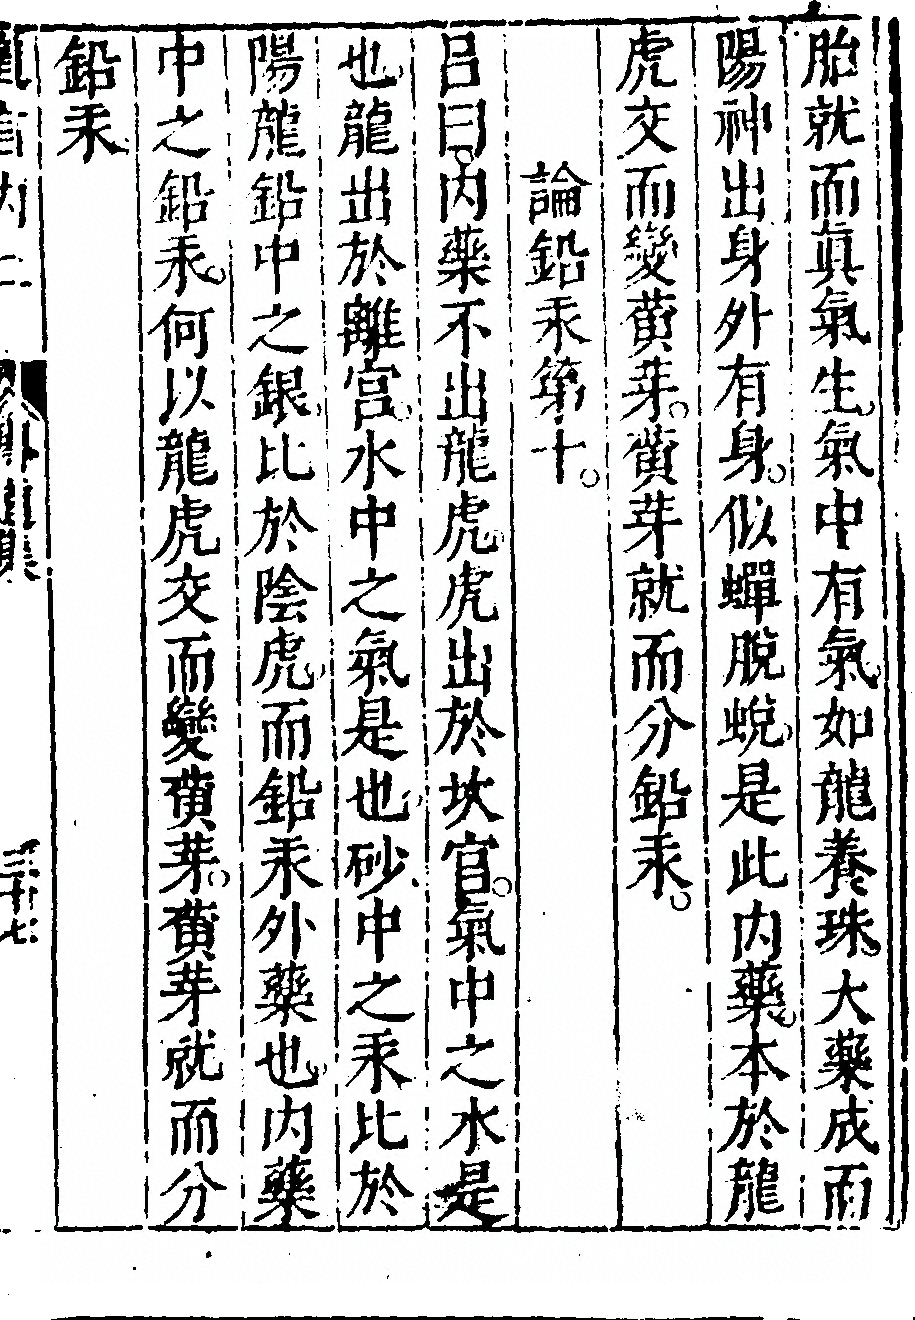 胎就而眞氣生。氣中有氣如龍養珠。大藥成而
陽神出身外有身。似蟬脫蛻。是此内藥。本於龍
虎交而變黄芽。黄芽就而分鉛汞。
論鉛汞第十。
吕曰。内藥不出龍虎。虎出於坎宫。氣中之水是
也。龍出於離宫。水中之氣是也。砂中之汞比於
陽龍鉛中之銀。比於陰虎。而鉛汞外藥也。内藥
中之鉛汞。何以龍虎交而變黄芽。黄芽就而分
鉛汞
三十七